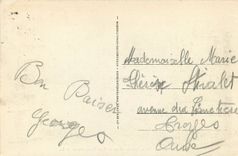 Bon Baiser
Georges
Mademoiselle Marie
Thérèse
avenue du
Troyes
Aube